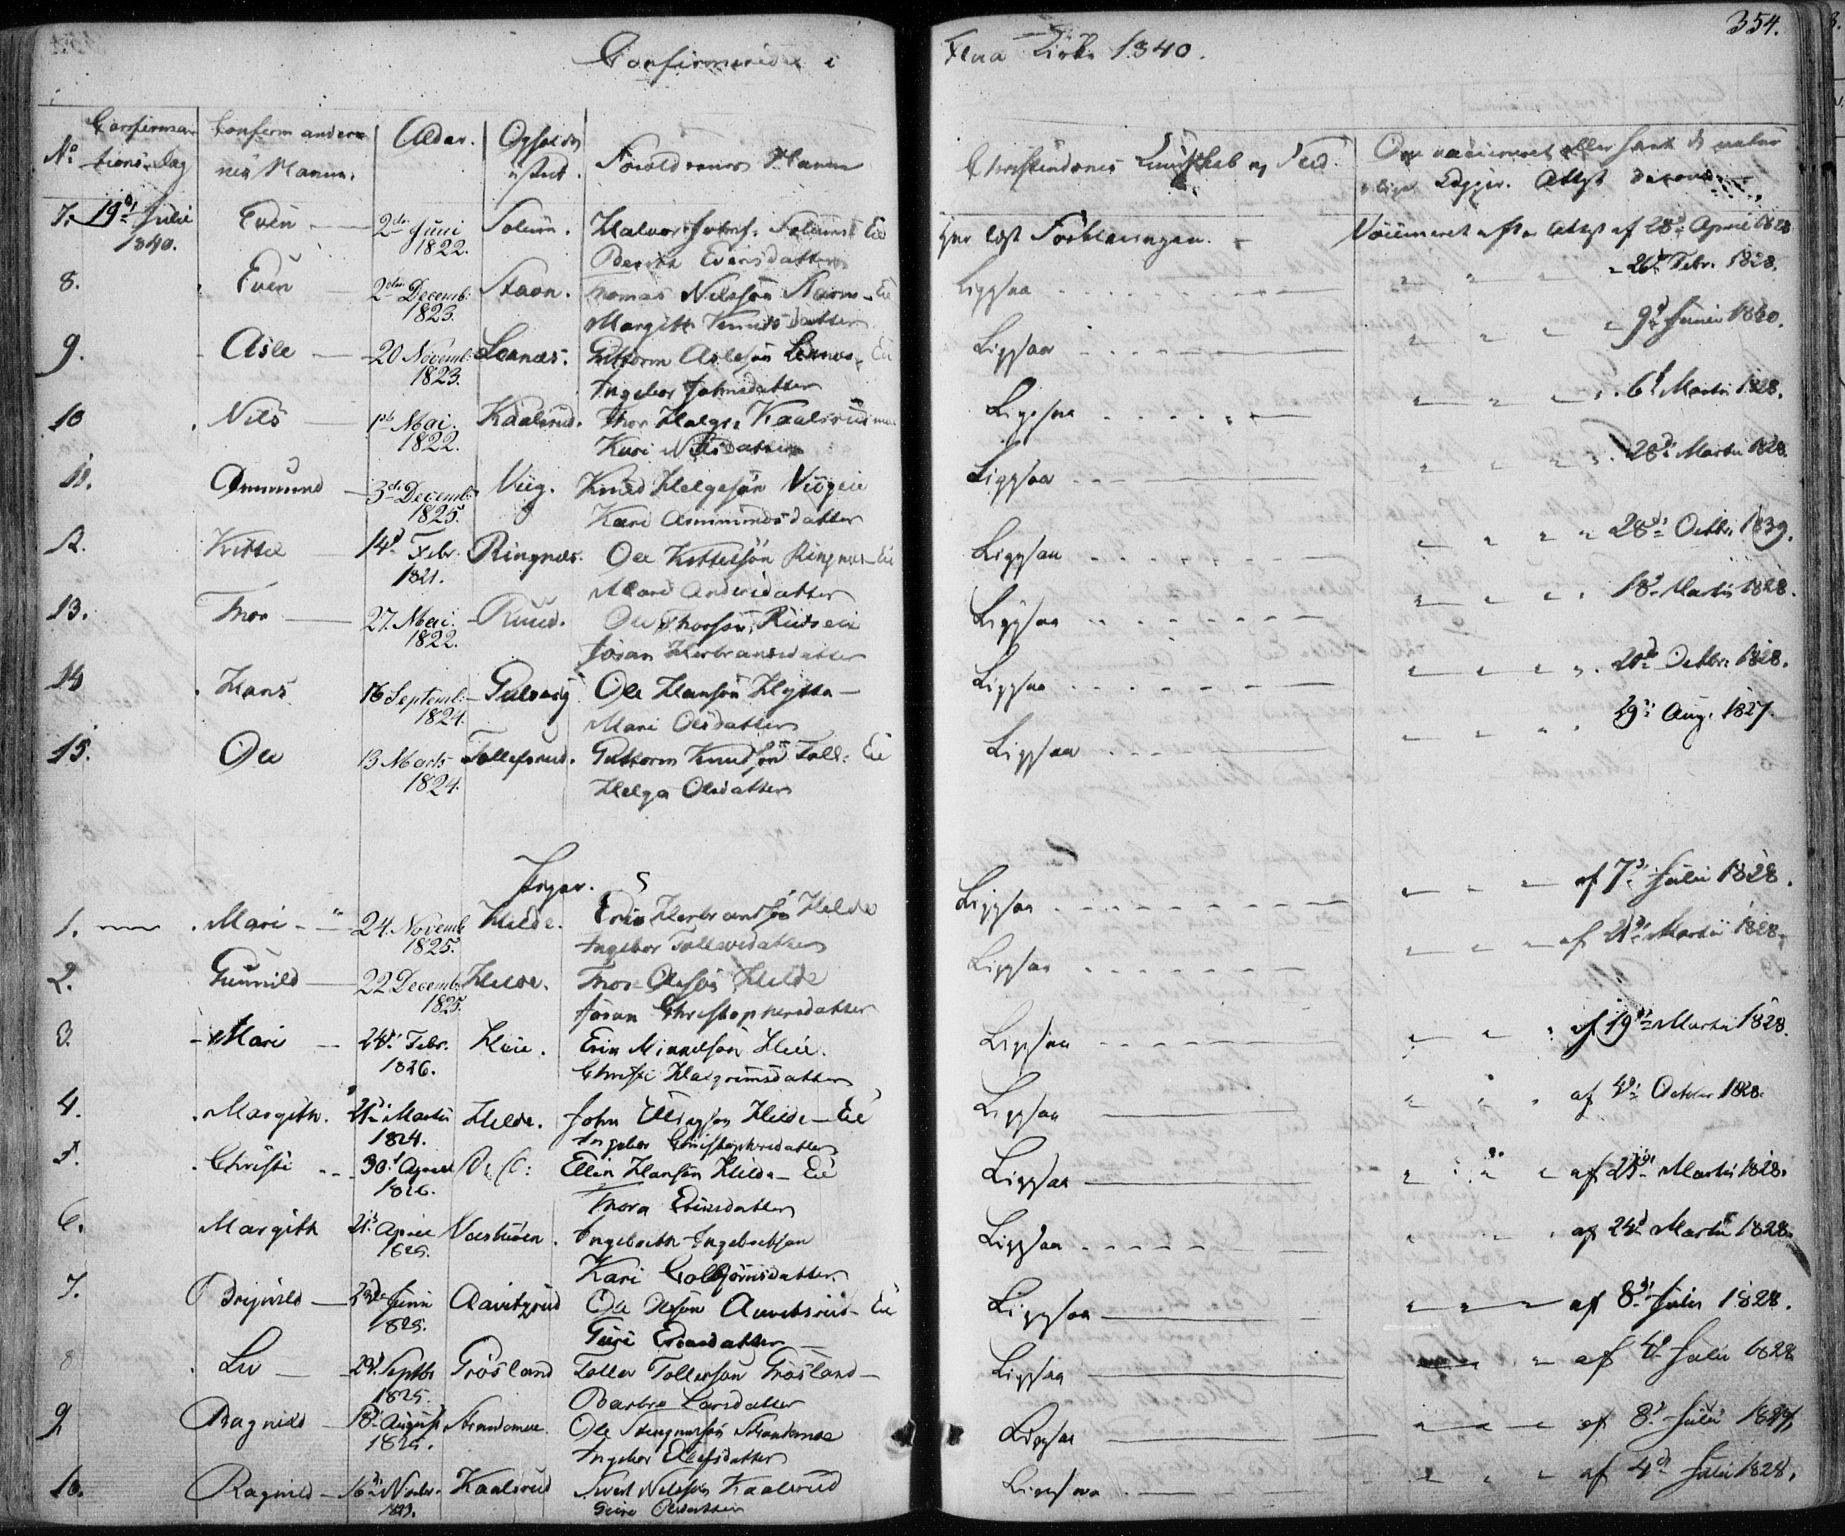 Confirmerede i Flaa Kirke 1840.
354.
No Confirmations-Dag
Confirmandernes Navne.
Alder.
Opholdssted.
Forældrenes Navne
Christendoms Kundskab og Flid.
Om vaccineret eller havt de naturlige Kopper. Attest
7. 19de Julii 1840. Even 2den Juni 1822. Solem. Halvor Solem Eie
Berith Evensdatter
Har læst Forklaringen. Vaccineret efter Attest af 28de April 1828
8. Even 2den Decemb: 1823. Stavn. Thomas Nilsøn Stavns Eie
Margith Knudsdatter
Ligesaa 26de Febr. 1828.
9. Asle 20 Novemb: 1823. Guttorm Aslesøn Eie
Ingebor Johnsdatter
Ligesaa 9de Junii 1840.
10 Nils 1ste Mai. 1822. Kaalsrud. Thor Helges. Kaalsrud
Kari Nilsdatter
Ligesaa 6te Martii 1828.
11. Ammund 3die Decemb: 1825. Viig. Knud Helgesøn Viigeie
Kari Ammundsdatter
Ligesaa 28de Martii 1828.
12. Kittel 14de Febr. 1821. Ringnæs. Ole Kittelsøn Ringnæs Eie
Mari Andersdatter
Ligesaa 28de Octbr. 1839.
13. Thor 27. Mai. 1822. Ruud. Ole Thorsøn, Rudseie
Jøran Herbrandsdatter
Ligesaa 18de Martii 1828.
14 Hans 16 Septemb: 1824. Gulsvig Ole Hansøn Hytta
Mari Olsdatter
Ligesaa Octbr. 1828.
15. Ole 13 Marts 1824. Tollefsrud. Guttorm Knudsøn Toll: Eie
Helga Olsdatter
Ligesaa 19de Aug. 1827.
Piger.
1. Mari 24. Novemb 1825. Helde. Herbrandsøn Helde
Ingebor Tollevsdatter
Ligesaa af 7de Julii 1828.
2. Gunnild 22 Decemb 1825. Helde. Thor Olesøn Helde
Jøran Christophersdatter
Ligesaa af 21de Martii 1828.
3. Mari 24de Febr. 1826. Heie. Erik Mikkelsøn Heie.
Christi Halgrimsdatter
Ligesaa af 19de Martii 1828.
4. Margith. 21de Martii 1824. Helde. John Ellingsøn Helde Eie
Ingebor Christophersdatter
Ligesaa af October 1828.
5. Christi 30te April 1826. Ellin Hansøn Helde Eie
Thora Evensdatter
Ligesaa af 25de Martii 1828.
6. Margith 21de April 1825. Ingebreth Ingebretsøn
Kari Colbjørnsdatter
Ligesaa af 24de Martii 1828.
7. Brynild Junii 1825. Aavestrud Ole Olsøn Aavestrud Eie
Guri
Ligesaa af 8de Julii 1828.
8 Liv Septbr 1825. Grøsland Toller Tollersøn Grøsland
Barbro Larsdatter
Ligesaa af 4de Julii 1828
9 Ragnild 18de August 1825. Strandemoe. Ole Steingrimsøn Strandemoe
Ingebor Olefsdatter
Ligesaa af 8de Julii
10. Ragnild 16de Novbr. Kaalsrud Nilsøn Kaalsrud
Guri Olsdatter
Ligesaa af 4de Julii 1828.